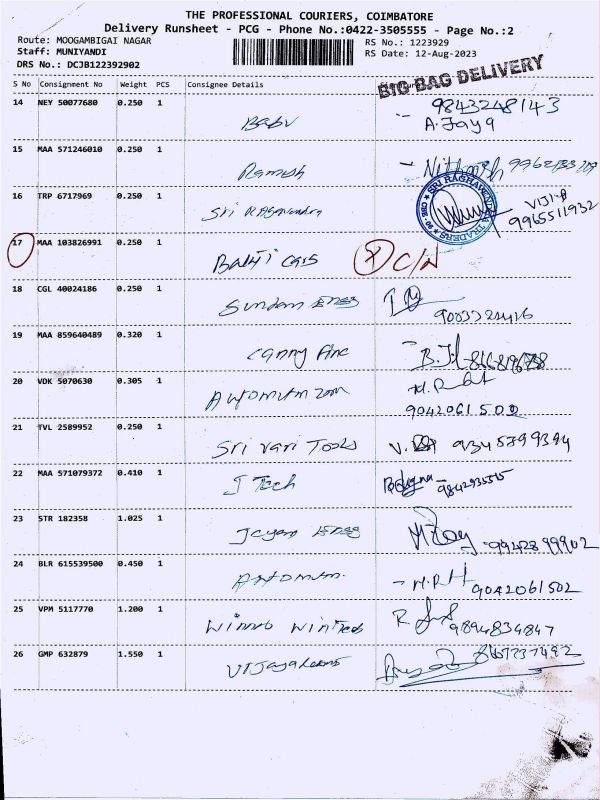 THE PROFESSIONAL COURIERS, COIMBATORE
Delivery Runsheet - PCG - Phone No.:0422-3505555 - Page No.:2
Route: MOOGAMBIGAI NAGAR
Staff: MUNIYANDI
DRS No.: DCJB122392902
RS No.: 1223929
RS Date: 12-Aug-2023
BIG BAG DELIVERY
S No Consignment No Weight PCS Consignee Details
14 NEY 50077680 0.250 1 Babu 9843248143
A. Jaya
15 MAA 571246010 0.250 1 Ramesh
16 TRP 6717969 0.250 1 Sri Ragavendra VIJI.P
9965511932
SRI RAGHAVENDRA TRADERS
17 MAA 103826991 0.250 1 Balaji Cars C/N
18 CGL 40024186 0.250 1 Sundam Engg
9003321416
19 MAA 859640489 0.320 1 canny Fine
20 VDK 5070630 0.305 1
9042061502
21 TVL 2589952 0.250 1 Sri Vari Tools 9345799394
22 MAA 571079372 0.410 1 J Tech 9842935515
23 STR 182358 1.025 1 Jeyam Engg 9942899902
24 BLR 615539500 0.450 1 9042061502
25 VPM 5117770 1.200 1 9894834847
26 GMP 632879 1.550 1 8667237492